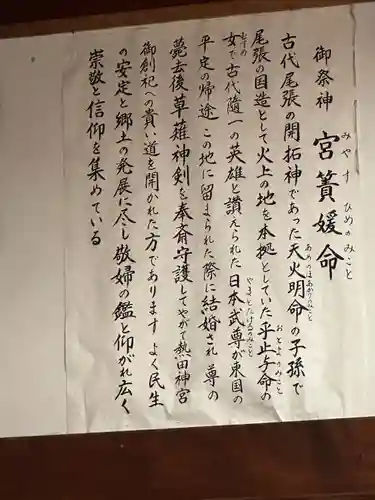 御祭神 宮簀媛命
みやすひめのみこと
古代尾張の開拓神であった天火明命の子孫で
あめのほあかりのみこと
尾張の国造として火上の地を本拠としていた乎止与命の
おとよのみこと
女で古代随一の英雄と讃えられた日本武尊が東国の
むすめ
やまとたけるのみこと
平定の帰途 この地に留まられた際に結婚され 尊の
薨去後草薙神剣を奉斎守護してやがて熱田神宮
御創祀への貴い道を開かれた方であります よく民生
の安定と郷土の発展に尽し敬婦の鑑と仰がれ広く
崇敬と信仰を集めている